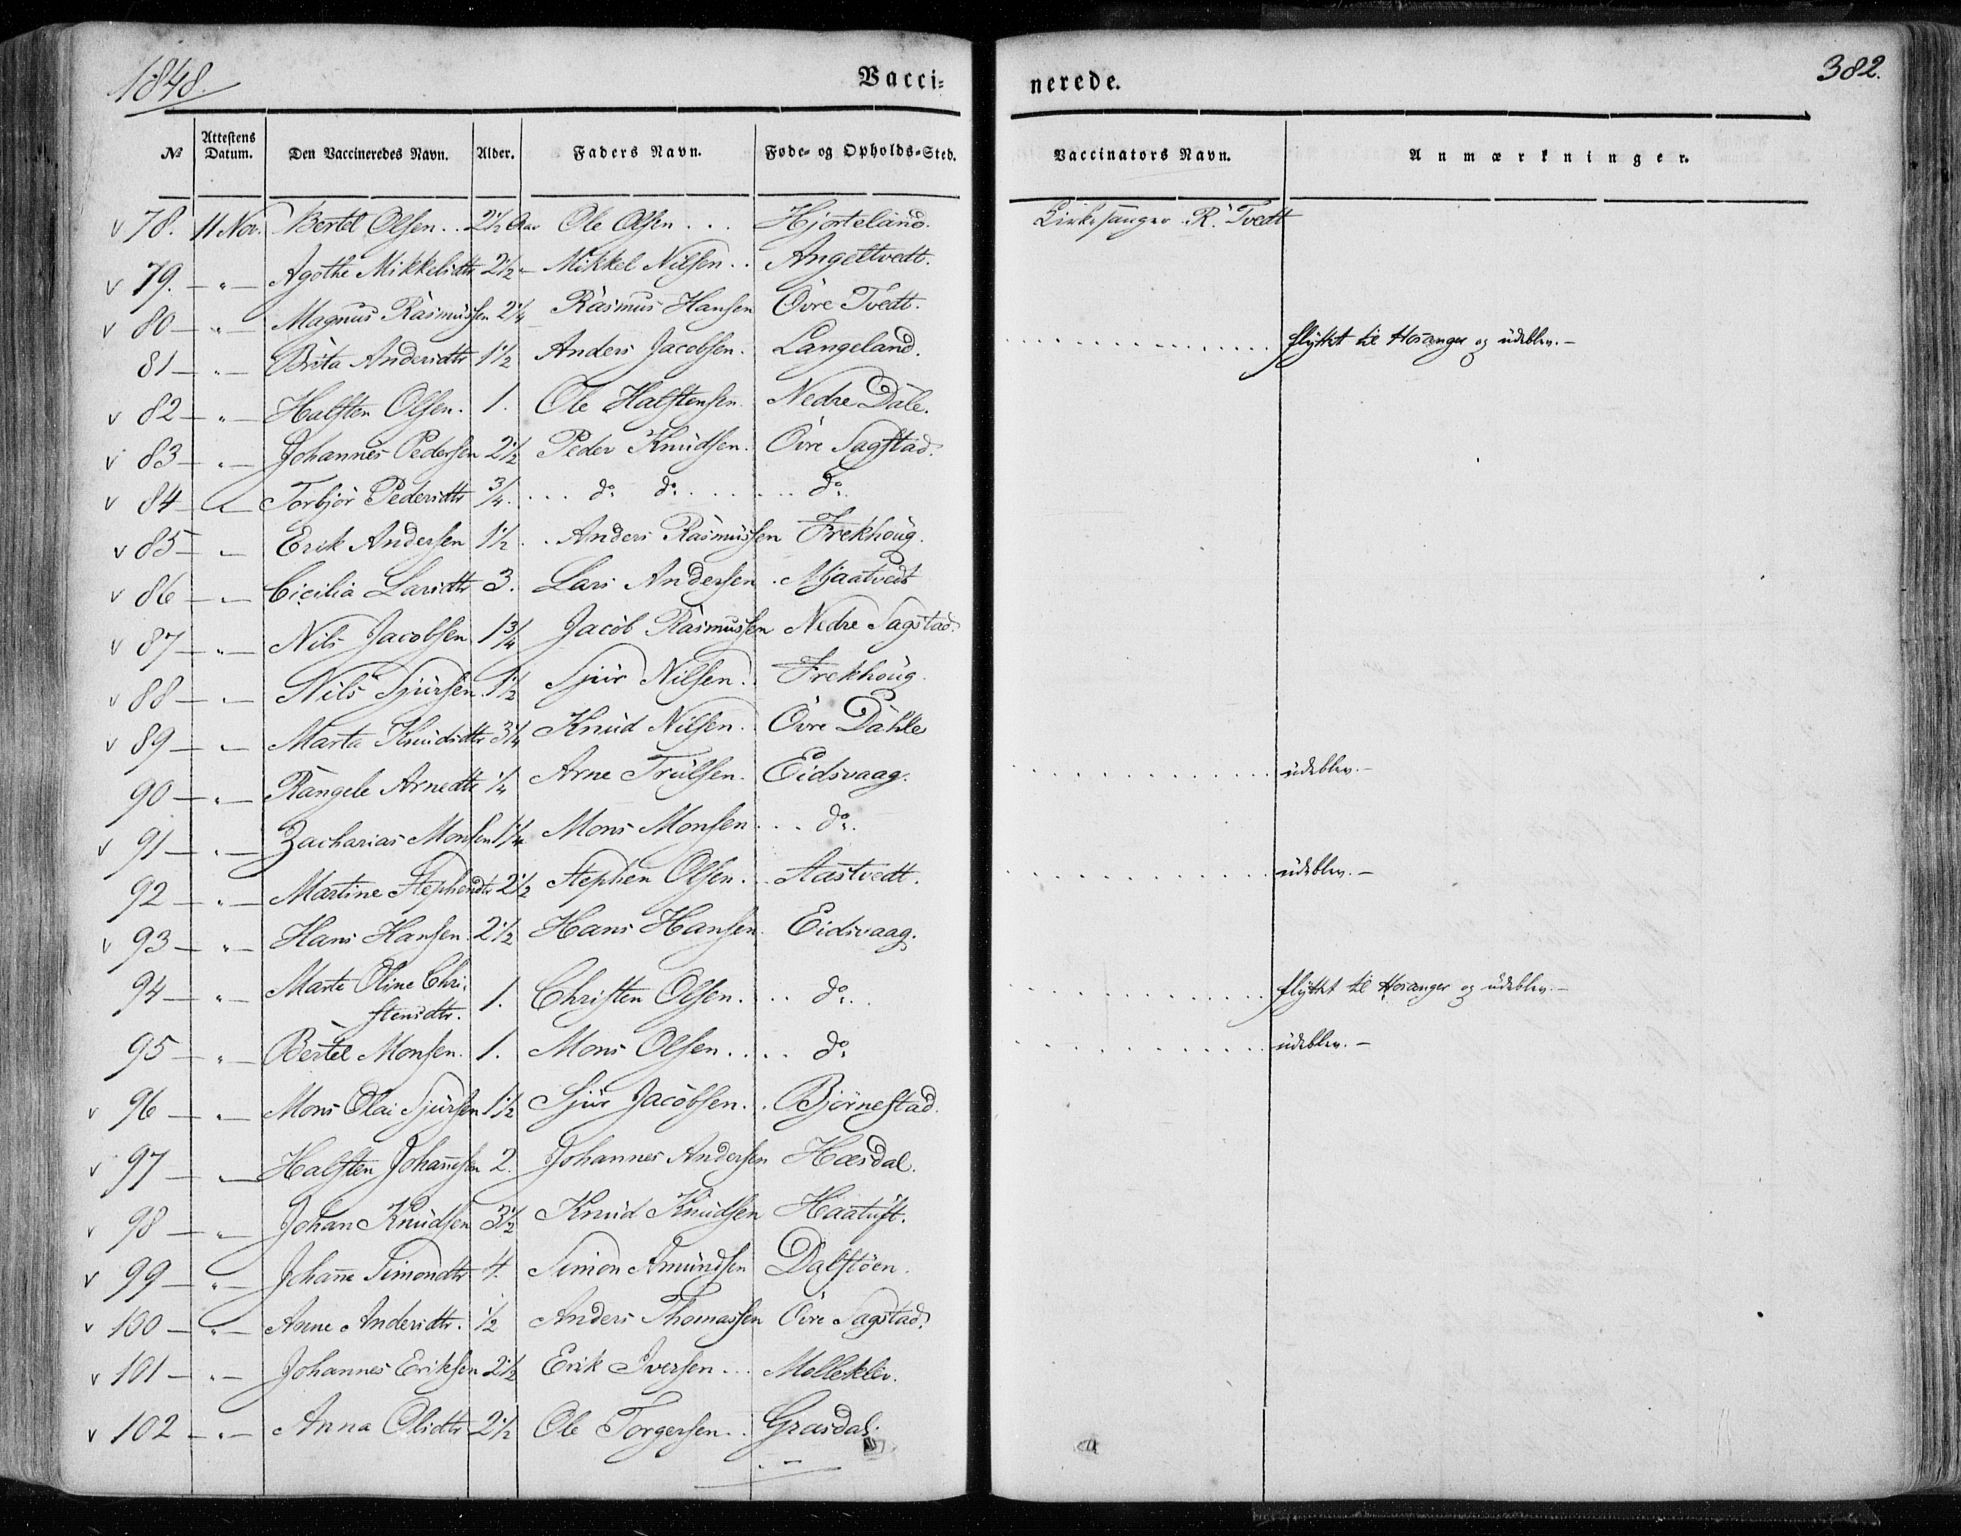 1848.
Vacci-
nerede.
382.
No Attestens Datum. Den Vaccineredes Navn. Alder. Faders Navn. Føde- og Opholds-Sted. Vaccinators Navn. Anmærkninger.
v 78. 11 Nov. Bertel Olsen .. 2 1/2 Aar Ole Olsen . . . Hjorteland. Kirkesanger R. Tvedt
v 79. — „ — Agothe Mikkelsdtr 2 1/2 — Mikkel Nilsen . . Angeltvedt.
v 80 — „ — Magnus Rasmussen 2 1/4 Rasmus Hansen Övre Tvedt.
81 — „ — Brita Andersdtr 1 1/2 Anders Jacobsen. Langeland. . . . . . . . . . . . . . flyttet til Hosanger og udeblev. —
v 82 — „ — Halsten Olsen. 1. Ole Halstensen. Nedre Dale.
v 83 — „ — Johannes Pedersen 2 1/2 Peder Knudsen. Övre Sagstad.
v 84 — „ — Torbjør Pedersdtr 3/4. . . . do do . . . . . . do.
v 85 — „ — Erik Andersen 1 1/2 . . Anders Rasmussen Frekhoug.
v 86 — „ — Cicilia Larsdtr 3. Lars Andersen . Mjaatvedt
v 87 — „ — Nils Jacobsen 1 3/4 Jacob Rasmussen Nedre Sagstad.
v 88 — „ — Nils Sjursen. 1 1/2 Sjur Nilsen. . Frekhoug.
v 89 — „ — Marta Knudsdtr 3 1/4 Knud Nilsen. Övre Dahle
90 — „ — Rangele Arnedtr 1/4 Arne Trulsen. Eidsvaag. . . . . . . . . . . . . . udeblev. —
v 91 — „ — Zacharias Monsen 1 1/4 Mons Monsen . . . do.
92 — „ — Martine Stephendtr 2 1/2 Stephen Olsen . . . Aastvedt. . . . . . . . . . . . . . udeblev. —
v 93 — „ — Hans Hansen. 2 1/2 Hans Hansen. Eidsvaag.
94 — „ — Marte Oline Chri-
stensdtr. 1. Christen Olsen. . . do. . . . . . . . . . . . . . . flyttet til Hosanger og udeblev. —
95 — „ — Bertel Monsen. 1. Mons Olsen . . . . do. . . . . . . . . . . . . . udeblev. —
v 96 — „ — Mons Olai Sjursen 1 1/2 Sjur Jacobsen. . Bjørnestad.
v 97 — „ — Halsten Johannesen 2. Johannes Andersen Hæsdal.
v 98 — „ — Johan Knudsen 3 1/2 Knud Knudsen Haatuft.
v 99 — „ — Johanne Simondtr 4. Simon Amundsen Dalstöen.
v 100 — „ — Anne Andersdtr. 1/2 Anders Thomassen Övre Sagstad.
v 101 — „ — Johannes Eriksen 2 1/2 Erik Iversen . . . Mölleklev.
v 102 — „ — Anna Olsdtr 2 1/2 Ole Torgersen . . Grasdal.